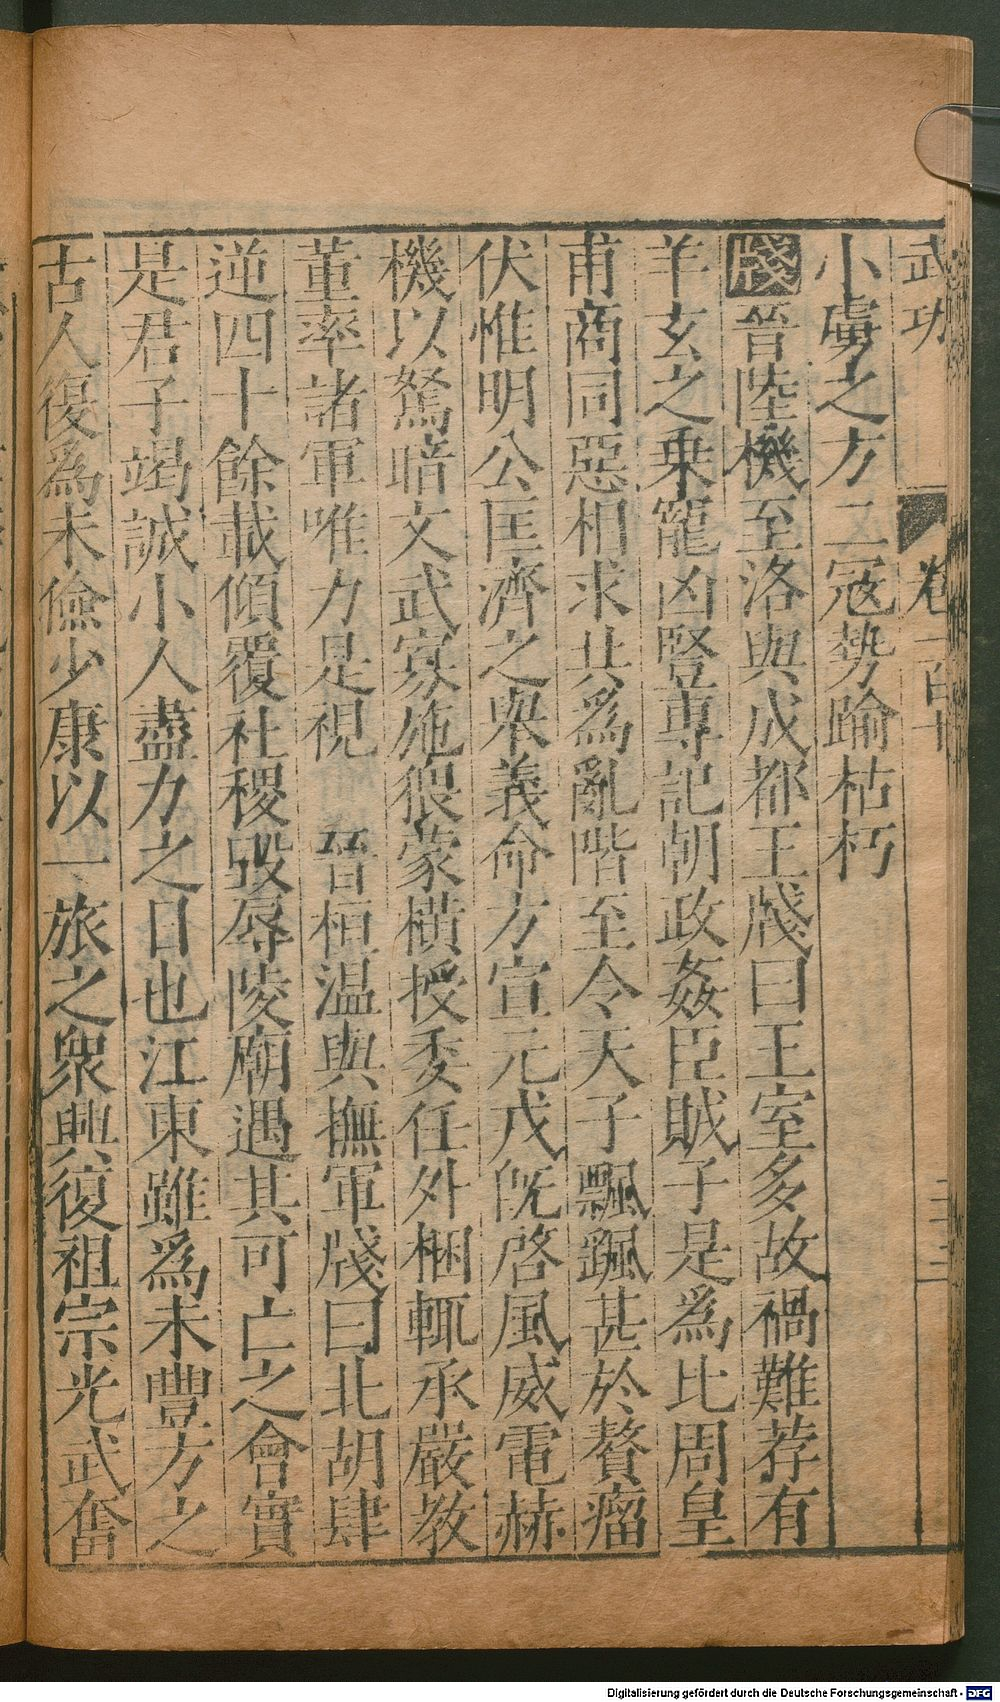 武功 卷一百十 二十二
小虜之方二冦勢踰枯朽
牋晉陸機至洛與成都王牋曰王室多故禍難荐有
羊玄之乗寵凶豎専記朝政姦臣賊子是爲比周皇
甫商同惡相求共爲亂階至令天子飄颻甚於贅瘤
伏惟明公匡濟之舉義命方宣元戎旣啓風威電赫
機以駑暗文武寡施猥蒙橫授委任外梱輒承嚴教
董率諸軍唯力是視 晉桓温與撫軍牋曰北胡肆
逆四十餘載傾覆社稷毀辱陵廟遇其可亡之會實
是君子竭誠小人盡力之日也江東雖爲未豐方之
古人復爲未儉少康以一旅之衆興復祖宗光武奮
Digitalisierung gefördert durch die Deutsche Forschungsgemeinschaft - DFG